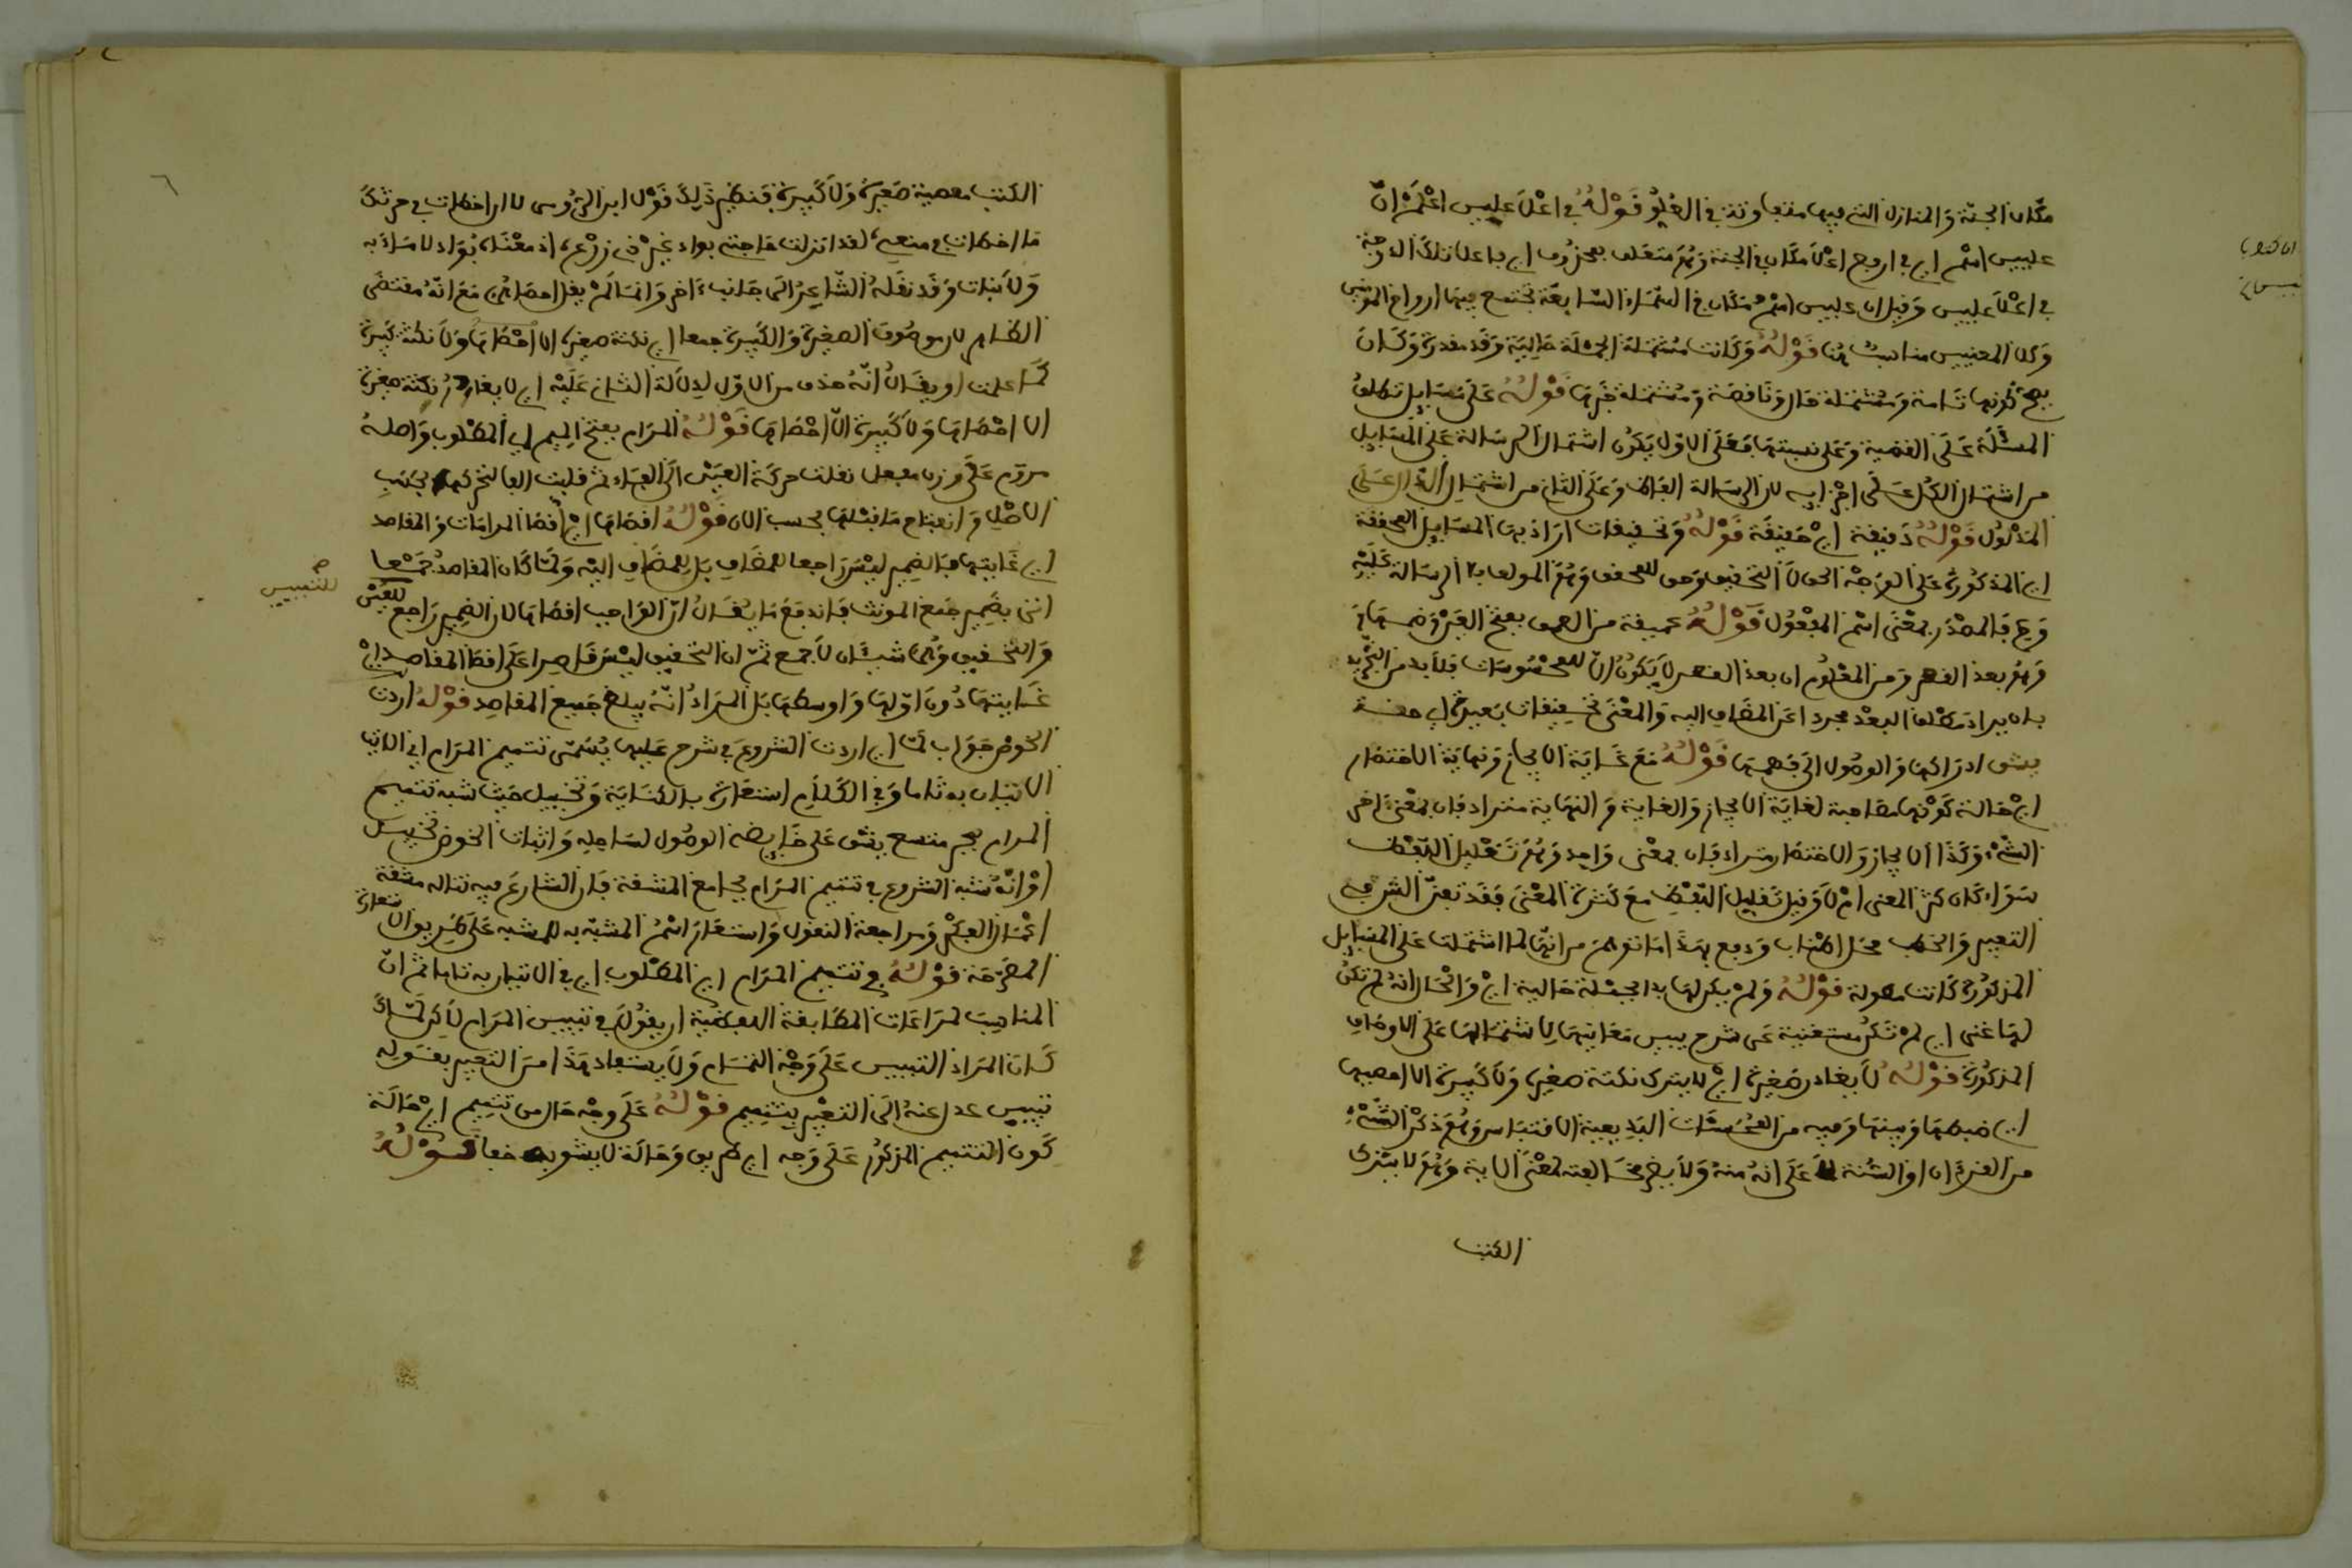 مكان الجنة والمنازل التي فيها متفاوتة في العلو قوله في اعلا عليين اعلم ان
عليين اسم اي في ارفع اعلا مكان في الجنة وهو متعلق بمحذوف اي باعلا تلك الدرجة
في اعلا عليين وقيل ان عليين اسم مكان في السماء السابعة تجتمع فيها ارواح المومنين
وكلا المعنيين مناسب هنا قوله وكانت مشتملة الجملة حالية وقد مقدرة وكان
يصح كونها تامة ومشتملة حال وناقصة ومشتملة خبرها قوله على مسايل تطلق
المسئلة على القضية وعلى نسبتها فعلى الاول يكون اشتمال الرسالة على المسايل
من اشتمال الكل على اجزايه لان الرسالة الفاظ وعلى الثاني من اشتمال الدال على
المدلول قوله دقيقة اي خفيفة قوله وتحقيقات اراد بها المسايل المحققة
اي المذكورة على الوجه الحق لان التحقيق وصف للمحقق وهو المولف لا الرسالة عليه
وع فالمصدر بمعنى اسم المفعول قوله عميقة من العمق بفتح العين وضمها
وهو بعد القعر ومن المعلوم ان بعد القعر لا يكون الا للمحسوسات فلا بد من التجريد
بان يراد مطلق البعد مجردا عن المضاف اليه والمعنى تحقيقات بعيدة اي
يشق ادراكها والوصول الى فهمها قوله مع غاية الايجاز ونهاية الاختصار
اي حالة كونها مصاحبة لغاية الايجاز والغاية والنهاية مترادفان بمعنى ءاخر
الشيء وكذا الايجاز والاختصار مترادفان بمعنى واحد وهو تقليل اللفظ
سواء كان كثر المعنى ام لا وقيل تقليل اللفظ مع كثرة المعنى فقد تفنن الش في
التعبير والخطب محل اطناب ودفع بهذا ما توهم من انها لما اشتملت على المسايل
المذكورة كانت مطولة قوله ولم يكن لها بد الجملة حالية اي والحال انه لم تكن
لها غنى اي لم تكن مستغنية عن شرح يبين معانيها لاشتمالها على الاوصاف
المذكورة قوله لا يغادر صغيرة اي لا يترك نكتة صغيرة ولا كبيرة الا احصيها
اي ضبطها وبينها وفيه من المحسنات البديعية الاقتباس وهو ذكر الشيء
من القرءان او السنة لا على انه منه ولا يضر مخالفته لمعنى الاية وهو لا يترك
الكتب
الكتب معصية صغيرة ولا كبيرة فنظير ذلك قول ابن الرومي لان اخطات في مدحك
ما اخطات في منعي لقد انزلت حاجتي بواد غير ذي زرع اذ معناه بواد لا ماء به
ولا نبات وقد نقله الشاعر الى جانب ءاخر وانما لم يقل احصاهن مع انه مقتضى
الظاهر لان موصوف الصغيرة والكبيرة جمعا اي نكتة صغيرة الا احصاها ولا نكتة كبيرة
كما علمت او يقال انه حذف من الاول لدلالة الثاني عليه اي لا يغادر نكتة صغيرة
الا احصاها ولا كبيرة الا احصاها قوله المرام بفتح الميم اي المطلوب واصله
مروم على وزن مفعل نقلت حركة العين الى الفاء ثم قلبت الفا لتحركها بحسب
الاصل وانفتاح ما قبلها بحسب الان قوله اقصاها اي اقصا المرامات والمقاصد
اي غايتها فالضمير ليس راجعا للمضاف بل للمضاف اليه ولما كان المقاصد جمعا
انثى بضمير جمع المونث فاندفع ما يقال ان الواجب اقصاها لان الضمير راجع للتبيين
والتحقيق وهما شيئان لا جمع ثم ان التحقيق ليس قاصرا على اقصا المقاصد اي
غايتها دون اولها واوسطها بل المراد انه يبلغ جميع المقاصد قوله اردت
الخوض جواب لما اي اردت الشروع في شرح عليها يسمى تتميم المرام اي الاتيا
الاتيان به تاما وفي الكلام استعارة بالكناية وتخييل حيث شبه تتميم
المرام ببحر متسع يشق على خايضه الوصول لساحله واثبات الخوض تخييل
او انه شبه الشروع في تتميم المرام بجامع المشقة فان الشارع فيه تناله مشقة
اعمال الفكر ومراجعة النقول واستعار اسم المشبه به للمشبه على طريق الاستعارة
المصرحة قوله في تتميم المرام اي المطلوب اي في الاتيان به تاما ثم ان
المناسب لمراعات المطابقة اللفظية ان يقول في تبيين المرام لاكن لما
كان المراد التبيين على وجه التمام ولا يستفاد هذا من التعبير بقوله
تبيين عدل عنه الى التعبير بتتميم قوله على وجه حال من تتميم اي حالة
كون التتميم المذكور على وجه اي طريق وحالة لا يشوبه خفا قوله
للتبيين